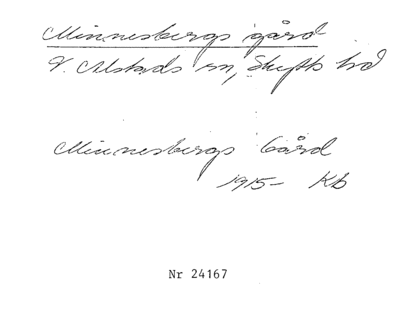 Minnesbergs gård
V. Alstads sn, Skytts hd
Minnesbergs Gård
1915– Kb
Nr 24167